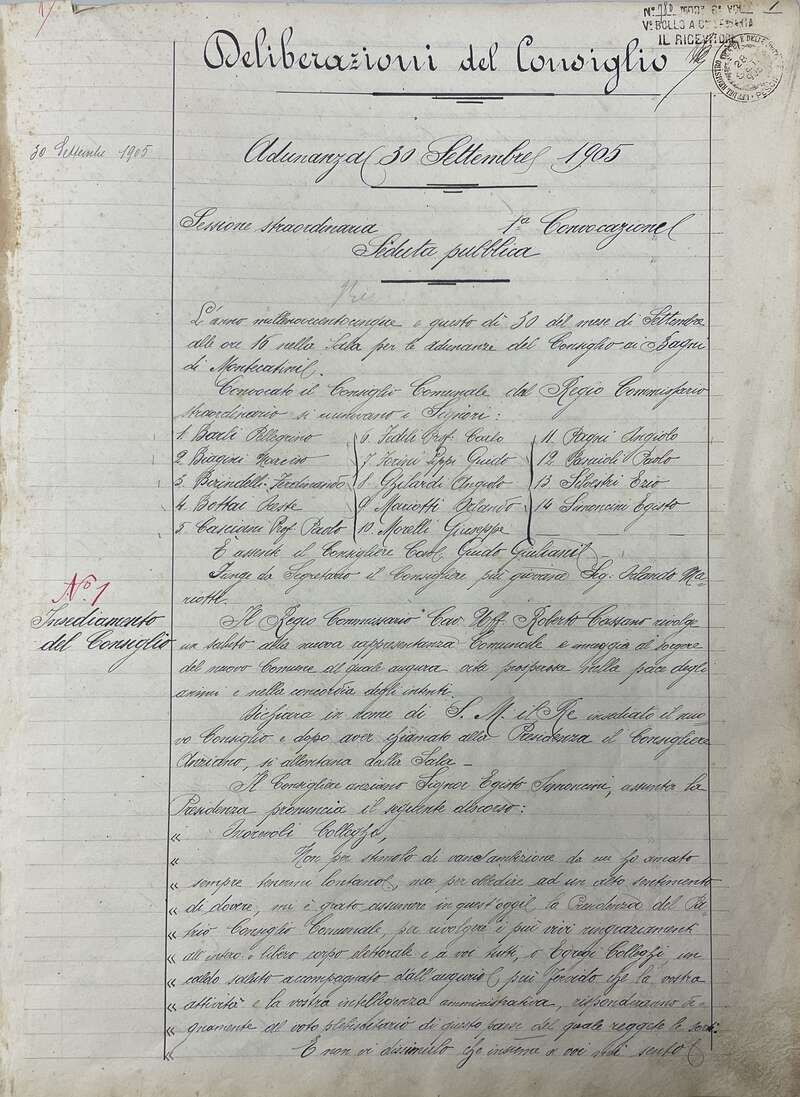 1
V° BOLLO A
IL RICEVITORE
Deliberazioni del Consiglio
30 Settembre 1905
Adunanza 30 Settembre 1905
Sessione straordinaria 1ª Convocazione
Seduta pubblica
L'anno millenovecentocinque e questo dì 30 del mese di Settembre
alle ore 16 nella Sala per le adunanze del Consiglio ai Bagni
di Montecatini.
Convocato il Consiglio Comunale dal Regio Commissario
straordinario si riunivano i Signori:
1 Bartli Pellegrino 6 Fedeli Prof. Carlo 11 Pagni Angiolo
2 Biagini Narciso 7 Forini Lippi Guido 12 Pancioli Paolo
3 Berindelli Ferdinando 8 Ghilardi Angiolo 13 Silvestri Ezio
4 Bottai Oreste 9 Mariotti Orlando 14 Simoncini Egisto
5 Casciani Prof. Paolo 10 Morelli Giuseppe
È assente il Consigliere Cav. Guido Giuliani.
Funge da Segretario il Consigliere più giovane Sig. Orlando Ma-
riotti.
N° 1
Insediamento
del Consiglio
Il Regio Commissario Cav. Uff. Roberto Cassano rivolge
un saluto alla nuova rappresentanza Comunale e inneggia al sorgere
del nuovo Comune al quale augura vita prosperosa nella pace degli
animi e nella concordia degli intenti.
Dichiara in nome di S. M. il Re insediato il nuo
vo Consiglio e dopo aver chiamato alla Presidenza il Consigliere
Anziano, si allontana dalla Sala -
Il Consigliere anziano Signor Egisto Simoncini, assunta la
Presidenza pronuncia il seguente discorso:
« Onorevoli Colleghi,
« Non per stimolo di vana ambizione da cui ho amato
« sempre tenermi lontano, ma per obbedire ad un alto sentimento
« di dovere, mi è grato assumere in quest'oggi la Presidenza del Pa-
« trio Consiglio Comunale, per rivolgere i più vivi ringraziamenti
« all'intero e libero corpo elettorale e a voi tutti, o Egregi Colleghi, un
« caldo saluto accompagnato dall'augurio più fervido che la vostra
« attività e la vostra intelligenza amministrativa, risponderanno de-
« gnamente al voto plebiscitario di questo paese del quale reggete le sorti.
« E non vi dissimulo che insieme a voi mi sento